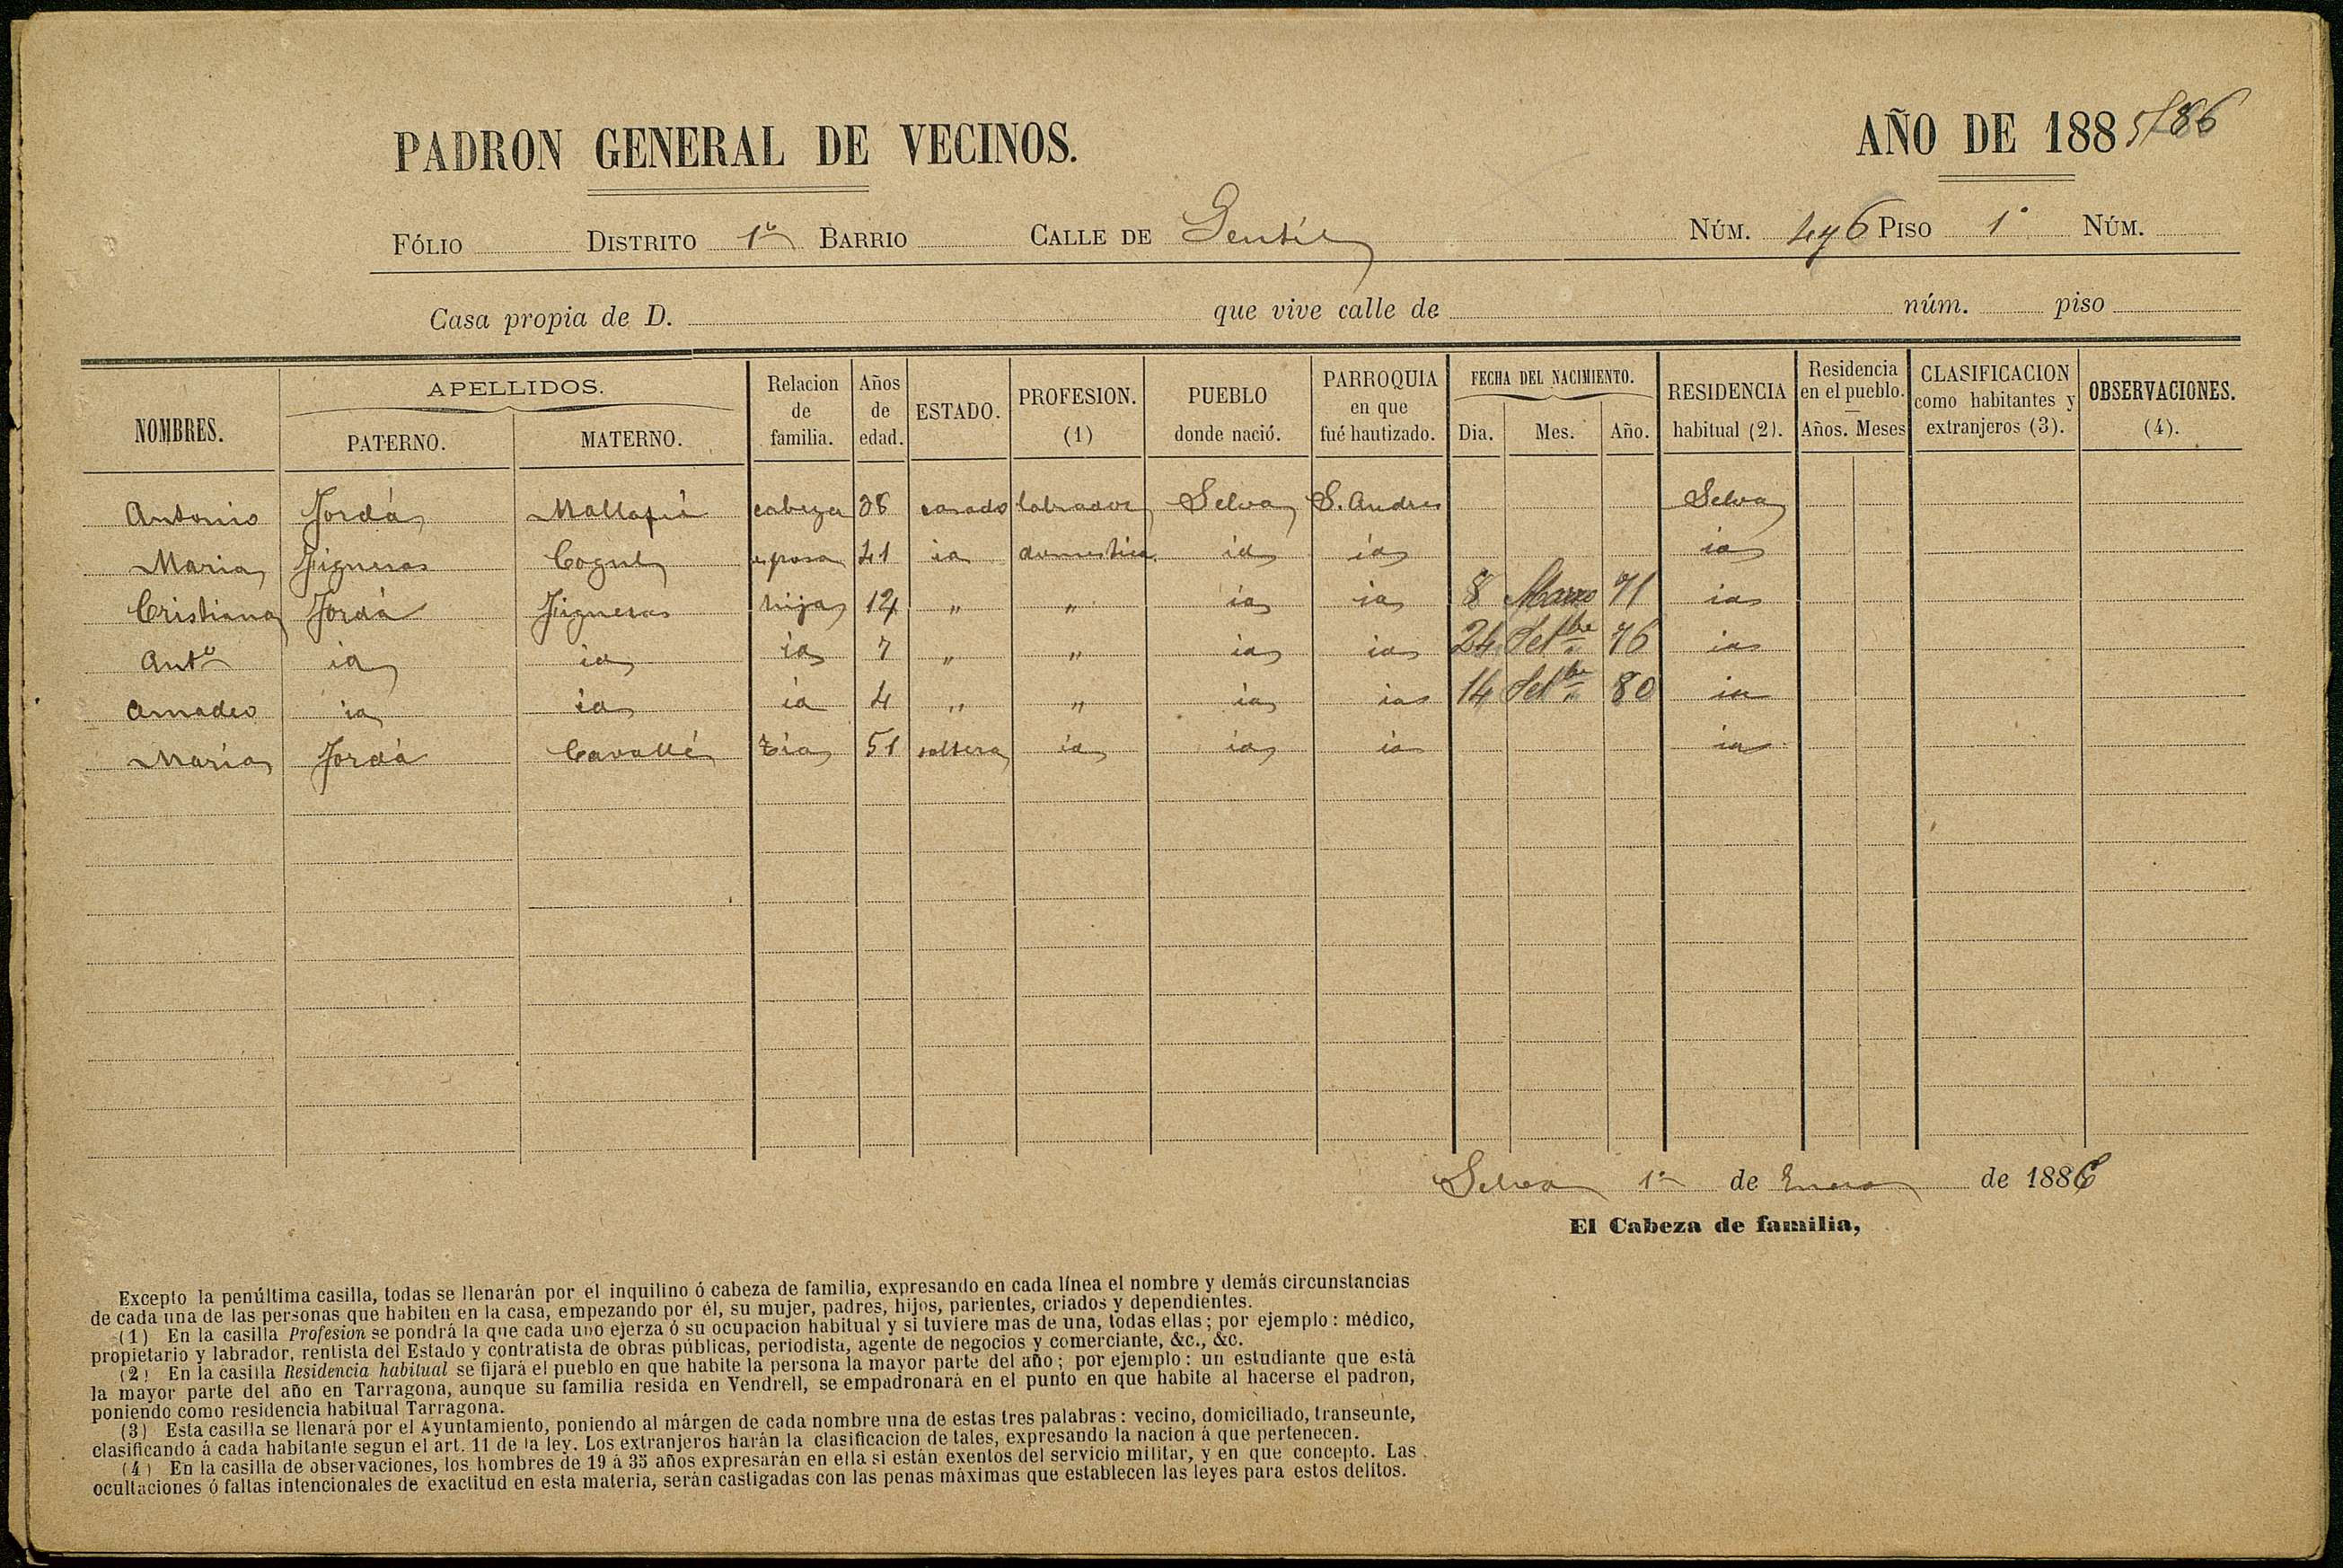 PADRON GENERAL DE VECINOS. AÑO DE 1885/86
FÓLIO DISTRITO 1º BARRIO CALLE DE Gentil NÚM. 496 PISO 1º NÚM.
Casa propia de D. que vive calle de núm. piso
NOMBRES. APELLIDOS. PATERNO. MATERNO. Relacion de familia. Años de edad. ESTADO. PROFESION. (1) PUEBLO donde nació. PARROQUIA en que fué bautizado. FECHA DEL NACIMIENTO. Dia. Mes. Año. RESIDENCIA habitual (2). Residencia en el pueblo. Años. Meses CLASIFICACION como habitantes y extranjeros (3). OBSERVACIONES. (4).
Antonio Jordá Mallafré cabeza 38 casado labrador Selva S. Andres Selva
Maria Figueras Cogul esposa 41 id domestica id id id
Cristiana Jordá Figueras hija 14 " " id id 8 Marzo 71 id
Antº id id id 7 " " id id 24 Setbre 76 id
Amadeo id id id 4 " " id id 14 Setbre 80 id
María Jordá Cavallé tia 51 soltera id id id id
Selva 1º de Enero de 1886
El Cabeza de familia,
Excepto la penúltima casilla, todas se llenarán por el inquilino ó cabeza de familia, expresando en cada línea el nombre y demás circunstancias
de cada una de las personas que habiten en la casa, empezando por él, su mujer, padres, hijos, parientes, criados y dependientes.
(1) En la casilla Profesion se pondrá la que cada uno ejerza ó su ocupacion habitual y si tuviere mas de una, todas ellas; por ejemplo: médico,
propietario y labrador, rentista del Estado y contratista de obras públicas, periodista, agente de negocios y comerciante, &c., &c.
(2) En la casilla Residencia habitual se fijará el pueblo en que habite la persona la mayor parte del año; por ejemplo: un estudiante que está
la mayor parte del año en Tarragona, aunque su familia resida en Vendrell, se empadronará en el punto en que habite al hacerse el padron,
poniendo como residencia habitual Tarragona.
(3) Esta casilla se llenará por el Ayuntamiento, poniendo al márgen de cada nombre una de estas tres palabras: vecino, domiciliado, transeunte,
clasificando á cada habitante segun el art. 11 de la ley. Los extranjeros harán la clasificacion de tales, expresando la nacion á que pertenecen.
(4) En la casilla de observaciones, los hombres de 19 á 35 años expresarán en ella si están exentos del servicio militar, y en que concepto. Las
ocultaciones ó faltas intencionales de exactitud en esta materia, serán castigadas con las penas máximas que establecen las leyes para estos delitos.